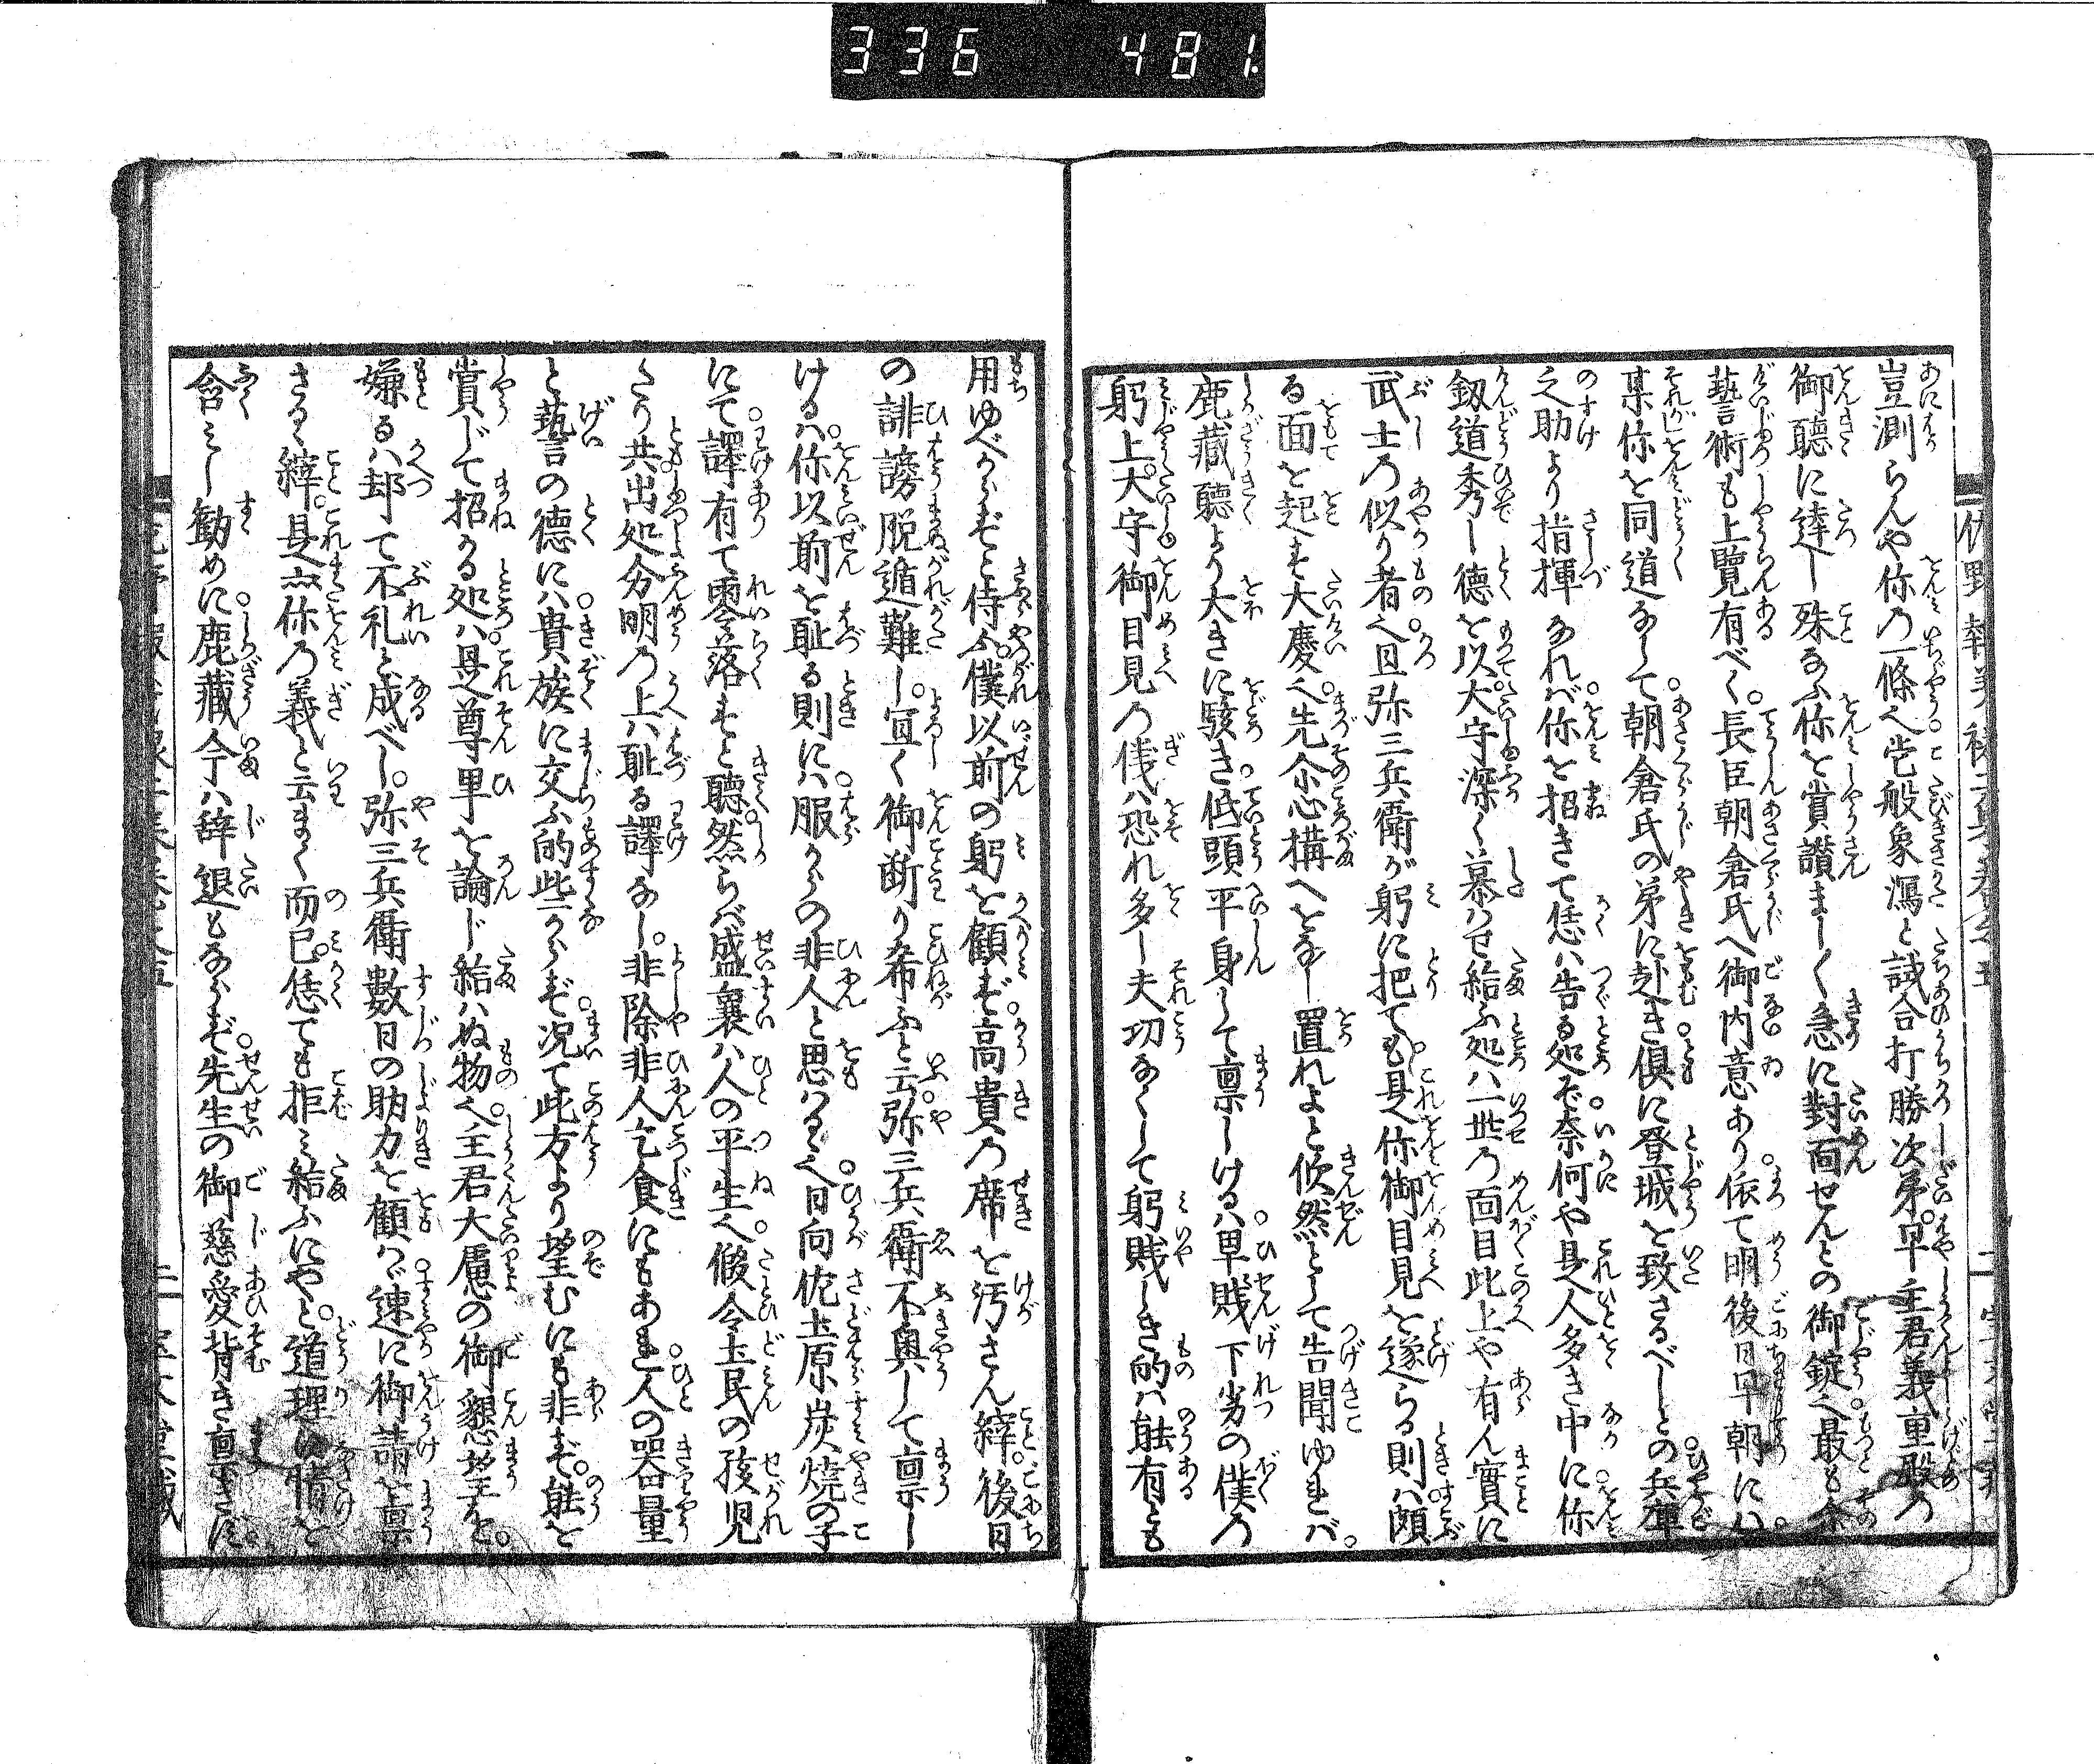 336 481.
豈測らんや你乃一條〻此般象瀉と試合打勝次第早主君義重殿乃
御聽に達し殊なふ你を賞讃まし〳〵急に對面せんとの御錠〻最も余
藝術も上覽有べく。長臣朝倉氏へ御内意あり依て明後日早朝にハ。
某你を同道なして。朝倉氏の弟に赴き倶に登城を致さるべしとの兵庫
之助より指揮なれバ。你を招きて恁ハ告る処ぞ奈何や是人多き中に你
釼道秀し德を以。大守深く慕ハせ給ふ処ハ一世乃面目此上や有ん實に
武士乃似り者〻。且弥三兵衛が躬に把ても。是你御目見を遂らる則ハ頗
る面を起へ大慶〻。先尒心構へをなし置れよと欣然として告聞ゆれバ。
鹿藏聽より大きに駭き。低頭平身して禀しけるハ。卑賎下劣の僕乃
躬上。大守御目見乃儀ハ恐れ多し夫功なくして躬賎しき的ハ能有とも
用ゆべからずと侍ふ。僕以前の躬を顧ず。高貴乃席を汚さん縡。後日
の誹謗脱遁難し。宜く御断り希ふと云。弥三兵衛不興して禀し
けるハ。你以前を耻る則にハ。服からの非人と思ハるゝ〻。日向佐土原炭焼の子
にて。譯有て零落すと聽。然らバ盛衰ハ人の平生〻。假令土民の孩児
たり共出処分明乃上ハ耻る譯なし。非除非人乞食にもあれ。人の器量
と藝の德にハ。貴族に交ふ的些からず。况て此方より望むにも非ず。能を
賞じて招かる処ハ。是尊卑を論じ給ハぬ物〻。主君大慮の御懇望を。
嫌るハ却て不礼と成べし。弥三兵衛數日の助力を顧ハゞ。速に御請を禀
さるゝ縡。是亦你乃義と云まく而已。恁ても拒み給ふにやと。道理に情を
含ミし勸めに。鹿藏今ハ辞退もならず。先生の御慈愛背き禀さず。